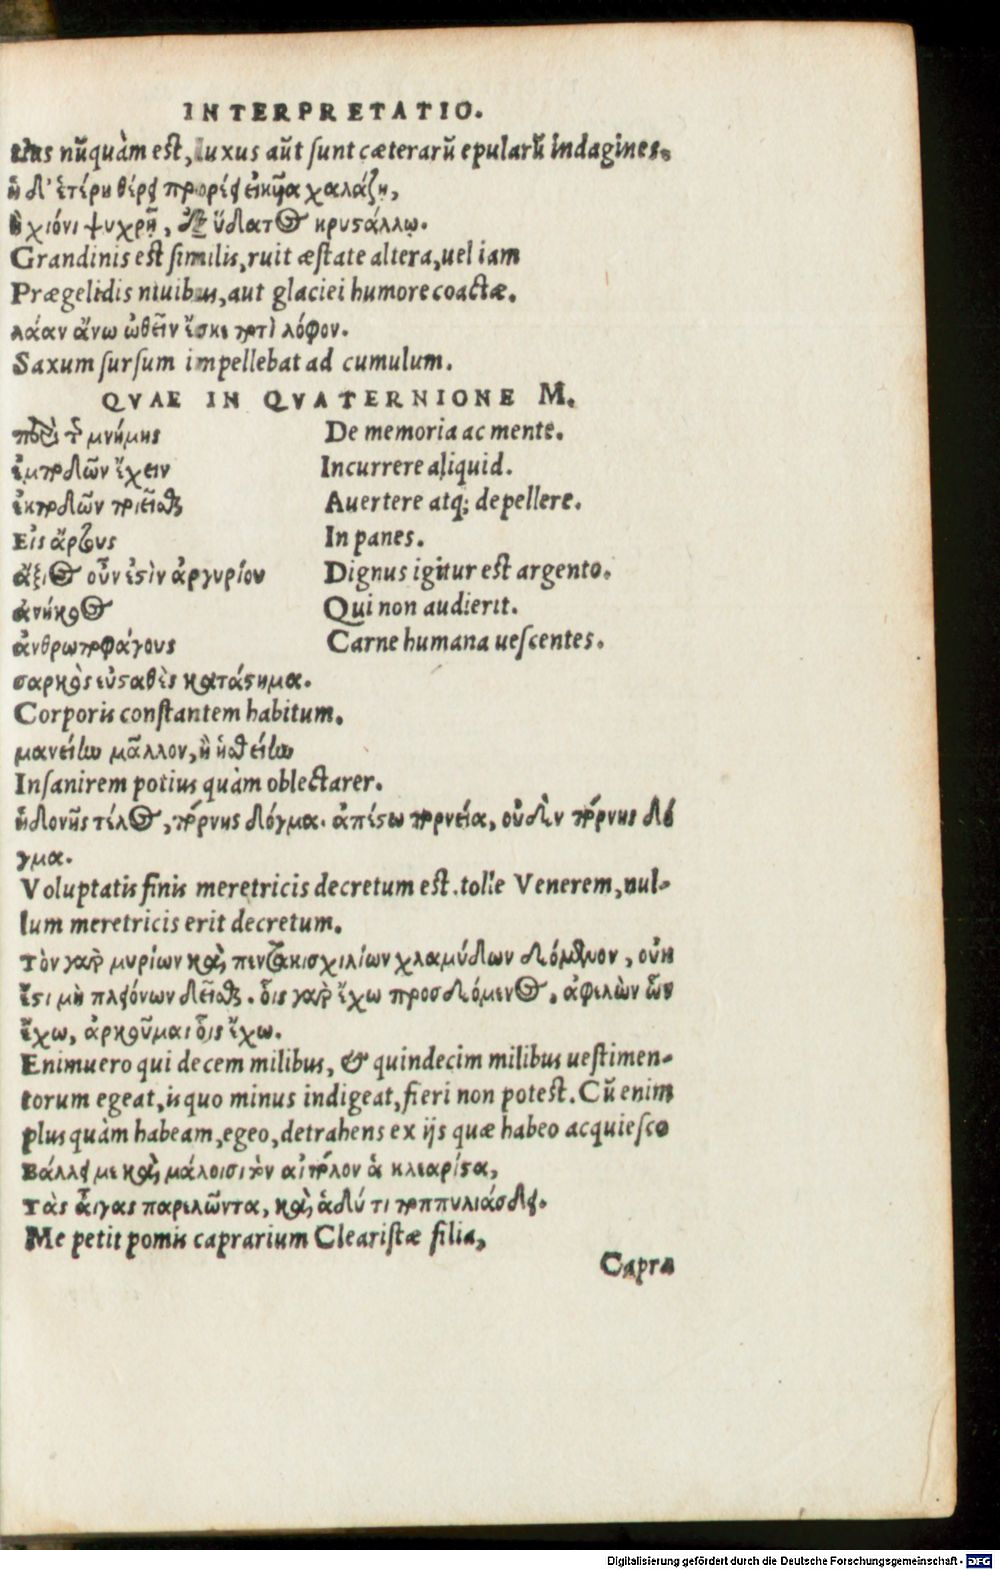 INTERPRETATIO.
nũquàm est, luxus aũt sunt cæterarũ epularũ indagines.
ἡ δ' ἑτέρη θέρει προρέει εἰκῦα χαλάζῃ,
ἢ χιόνι ψυχρῇ, ἢ ἐξ ὕδατος κρυστάλλῳ.
Grandinis est similis, ruit æstate altera, uel iam
Prægelidis niuibus, aut glaciei humore coactæ.
λάαν ἄνω ὠθεῖν ἔσκε ποτὶ λόφον.
Saxum sursum impellebat ad cumulum.
QVAE IN QVATERNIONE M.
περὶ τῆς μνήμης De memoria ac mente.
ἐμποδῶν ἔχειν Incurrere aliquid.
ἐκποδῶν ποιεῖσθαι Auertere atq; depellere.
Εἰς ἄρτους In panes.
ἄξιος οὖν ἐστὶν ἀργυρίου Dignus igitur est argento.
ἀνήκοος Qui non audierit.
ἀνθρωποφάγους Carne humana uescentes.
σαρκὸς εὐσταθὲς κατάστημα.
Corporis constantem habitum.
μανείην μᾶλλον, ἢ ἡσθείην
Insanirem potius quàm oblectarer.
ἡδονῆς τέλος, πόρνης δόγμα. ἀπέστω πορνεία, οὐδὲν πόρνης δό
γμα.
Voluptatis finis meretricis decretum est. tolle Venerem, nul-
lum meretricis erit decretum.
τὸν γὰρ μυρίων καὶ πεντακισχιλίων χλαμύδων δεόμενον, οὐκ
ἔστι μὴ πλειόνων δεῖσθαι. οἷς γὰρ ἔχω προσδεόμενος. ἀφελὼν ὧν
ἔχω, ἀρκοῦμαι οἷς ἔχω.
Enimuero qui decem milibus, & quindecim milibus uestimen-
torum egeat, is quo minus indigeat, fieri non potest. Cũ enim
plus quàm habeam, egeo, detrahens ex ijs quæ habeo acquiesco
Βάλλει με καὶ μάλοισι τὸν αἰπόλον ἁ κλεαρίστα,
τὰς αἶγας παρελῶντα, καὶ ἁδύ τι ποππυλιάσδει.
Me petit pomis caprarium Clearistæ filia,
Capra
Digitalisierung gefördert durch die Deutsche Forschungsgemeinschaft - DFG